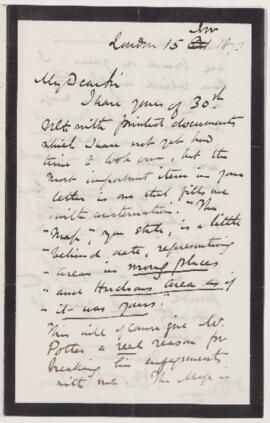 London 15 Nov 1873
My Dear Sir
I have yours of 30th
Ulto with printed documents
which I have not yet had
time to look over, but the
most important item in your
letter is one that fills me
with consternation. "The
"Map", you state, is a little
"behind date, representing
"areas in wrong places
"and Hudsons area as if
"it was yours."
This will of course give Mr.
Potter a real reason for
breaking his engagements
with me. The Map is